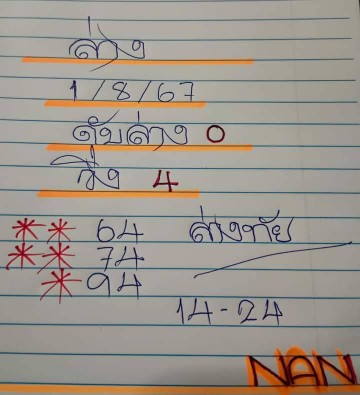 ล่าง
1/8/67
ดับล่าง 0
วิ่ง 4
** 64 ส่งท้าย
** 74
* 94
14-24
NAN